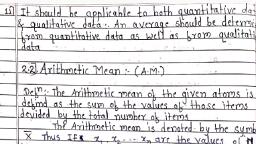 15] It should be applicable to both quantitative da
& qualitative data. An average should be determi
from quantitative data as well as from qualitati
data
2.2] Arithmetic Mean :- (A.M.)
Defn:- The Arithmetic mean of the given atoms is
defind as the sum of the values of those items
devided by the total number of items
The Arithmetic mean is denoted by the symb
X. Thus If x₁, x₂ ... xn are the values of N